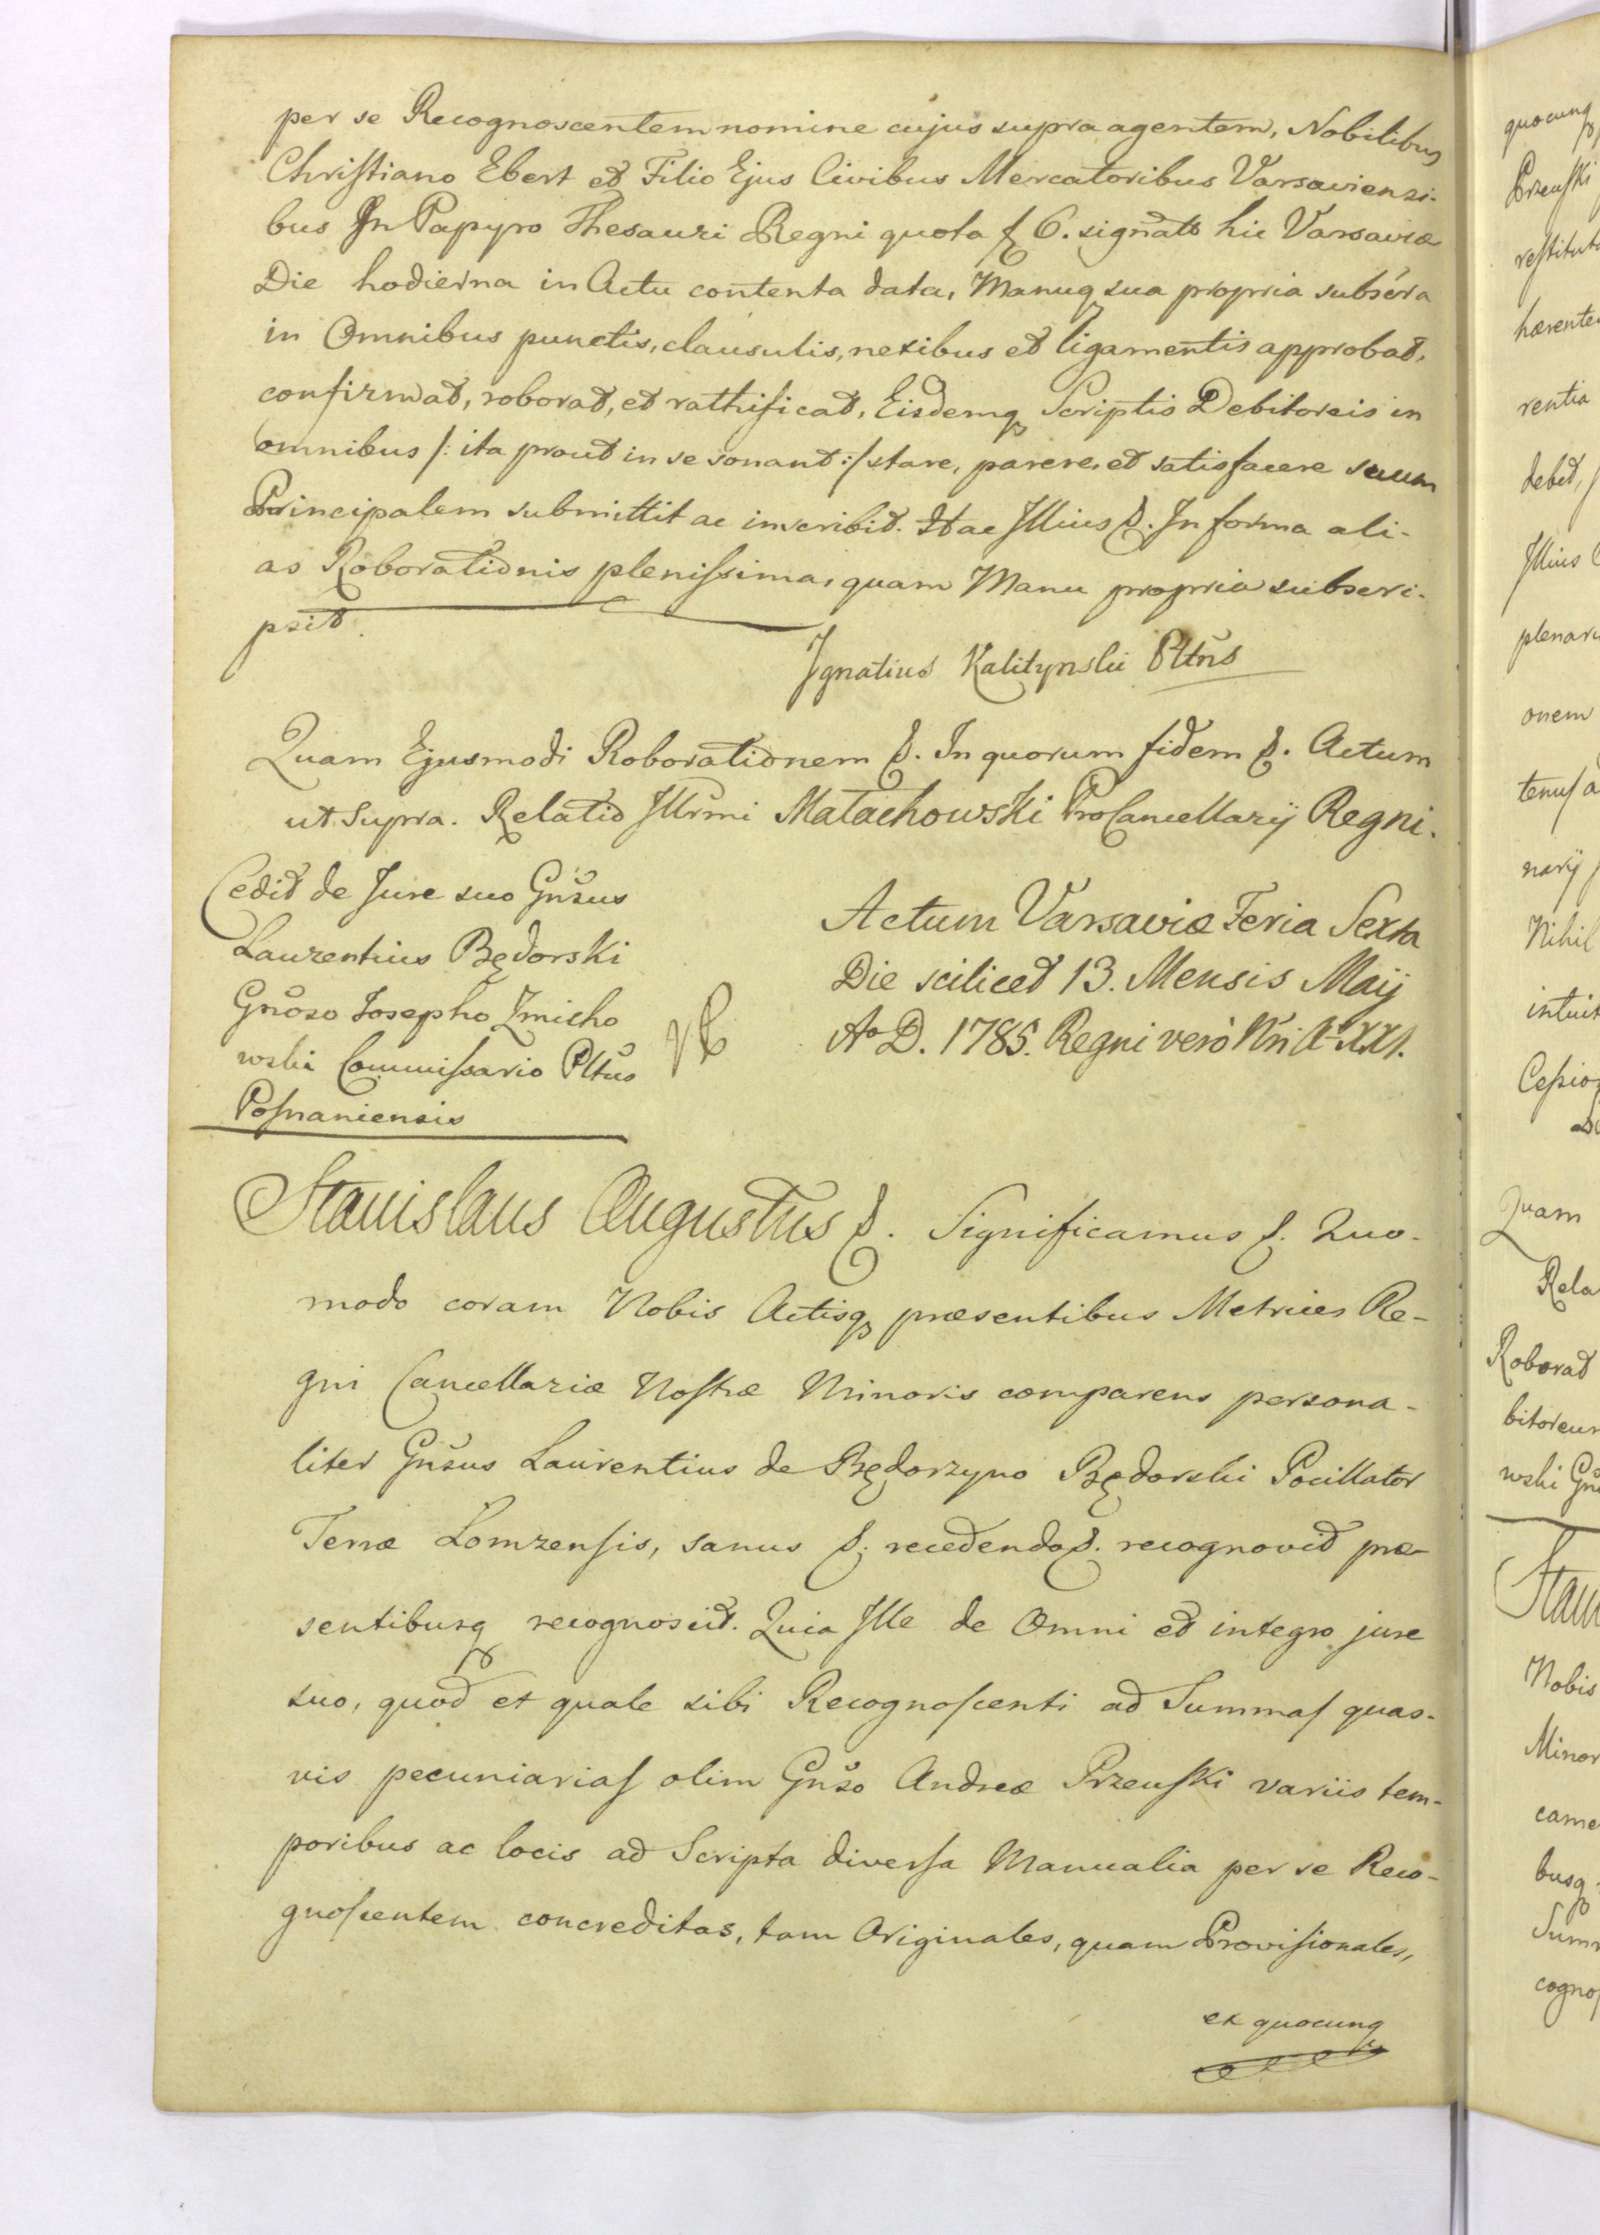 per se Recognoscentem nomine cujus supra agentem, Nobilibus
Christiano Ebert et Filio Ejus Civibus Mercatoribus Varsaviensi-
bus In Papyro Thesauri Regni quota f 6. signato hic Varsaviæ
Die hodierna in Actu contenta data, Manuq sua propria subscra
in Omnibus punctis, clausulis, nexibus et ligamentis approbat,
confirmat, roborat, et rathificat, Eisdemq Scriptis Debitoreis in
omnibus /: ita prout in se sonant :/ stare, parere, et satisfacere suum
Principalem submittit ac inscribit. Hac Illius &. In forma ali-
as Roborationis plenissima, quam Manu propria subscri-
psit.
Ignatius Kalitynski Pltñs
Quam Ejusmodi Roborationem &. In quorum fidem &. Actum
ut Supra. Relatio Illrmi Małachowski ProCancellarij Regni.
Cedit de Jure suo Gñsus
Laurentius Będorski
Gñoso Josepho Zmicho
wski Commissario Pltus
Posnaniensis
Actum Varsaviæ Feria Sexta
Die scilicet 13. Mensis Maij
Ao D. 1785. Regni verò Nri Ao XXI.
Stanislaus Augustus &. Significamus &. Quo-
modo coram Nobis Actisq præsentibus Metrices Re-
gni Cancellariæ Nostræ Minoris comparens persona-
liter Gñsus Laurentius de Będorzyno Będorski Pocillator
Terræ Lomzensis, sanus &. recedendo &. recognovit præ-
sentibusq recognoscit. Quia Ille de Omni et integro jure
suo, quod et quale sibi Recognoscenti ad Summas quas-
vis pecuniarias olim Gñso Andreæ Przeuski variis tem-
poribus ac locis ad Scripta diversa Manualia per se Reco-
gnoscentem concreditas, tam Originales, quam Provisionales,
ex quocunq
quocunq
Przeuski
restitut
hærente
rentia
debet,
Illius
plenari
onem
tenus a
narij
Nihil
intuit
Cessio
Quam
Rela
Roborat
bitoreum
wski Gñ
Stani
Nobis
Minor
came
busq
Summ
cognos